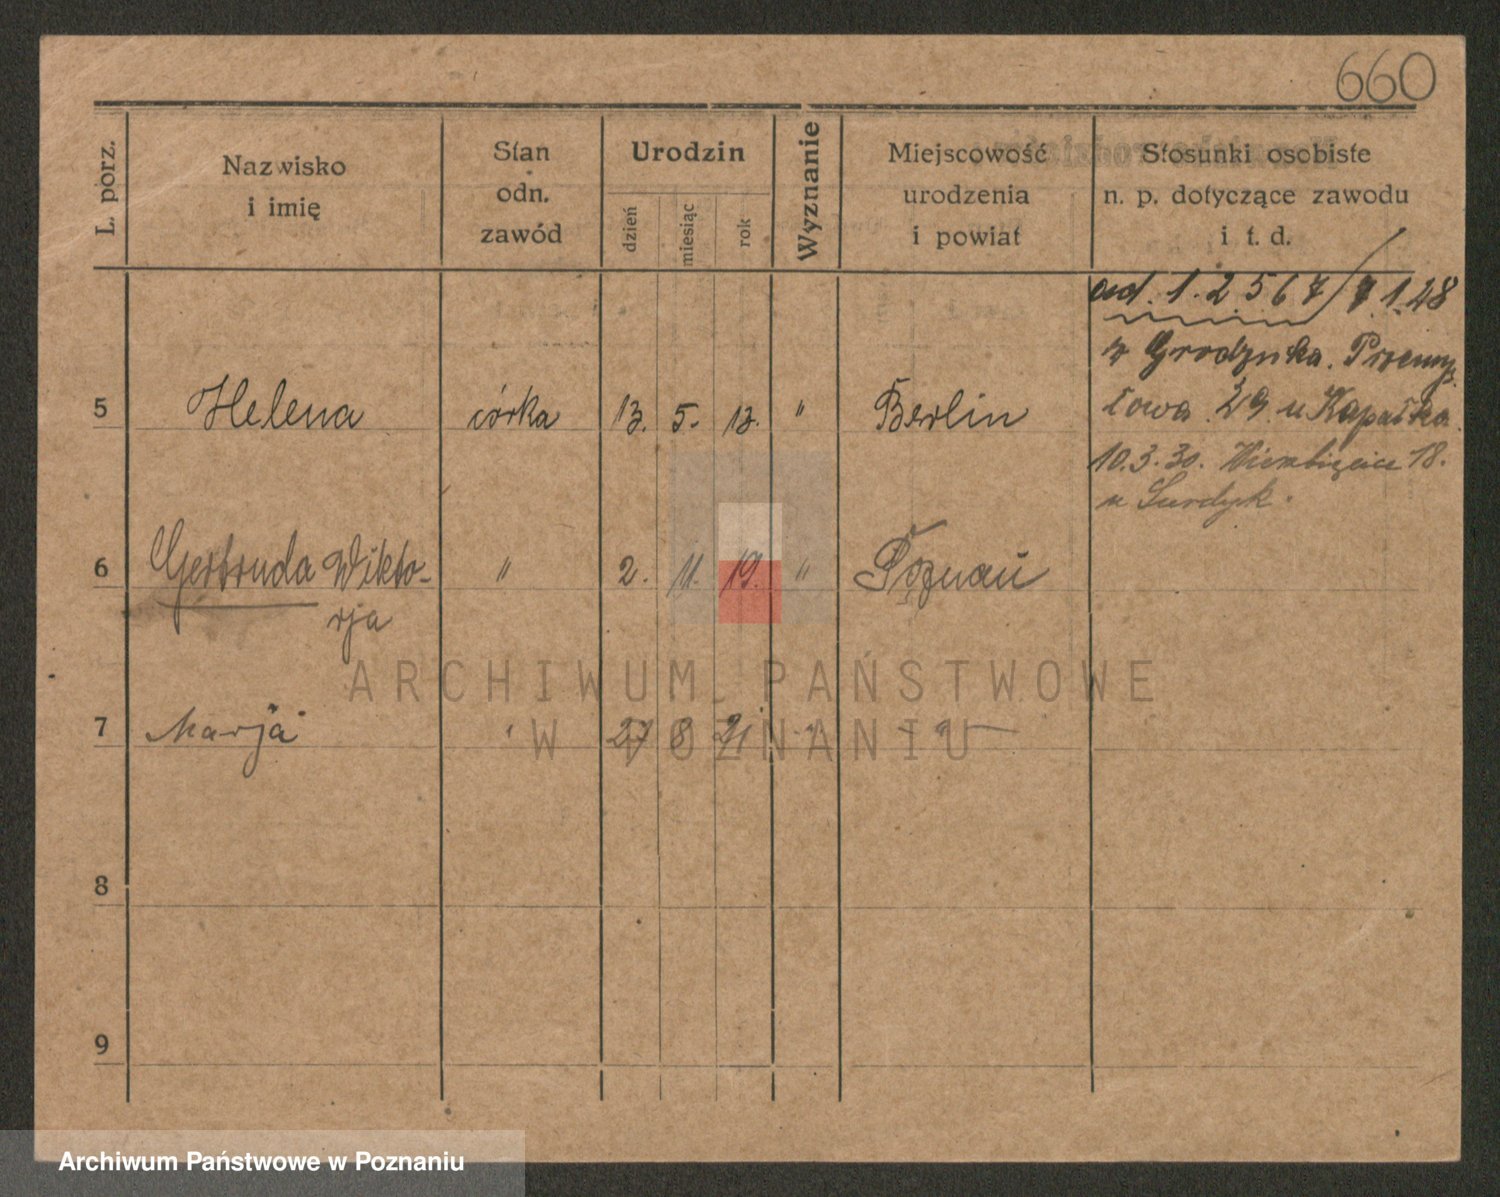 660
L. porz.
Nazwisko
i imię
Stan
odn.
zawód
Urodzin
dzień
miesiąc
rok
Wyznanie
Miejscowość
urodzenia
i powiat
Stosunki osobiste
n. p. dotyczące zawodu
i t. d.
ad. 1. 2 5 6 7 / 7.1.28
z Grodziska. Przemy
5 Helena córka 13. 5. 13. " Berlin
słowa 29 u
10.3.30. 18.
u Surdyk.
6 Gertruda Wikto- " 2. 11. 19. " Poznań
rja
7 Marja " 27 8 21 " "
8
9
ARCHIWUM PAŃSTWOWE
W POZNANIU
Archiwum Państwowe w Poznaniu